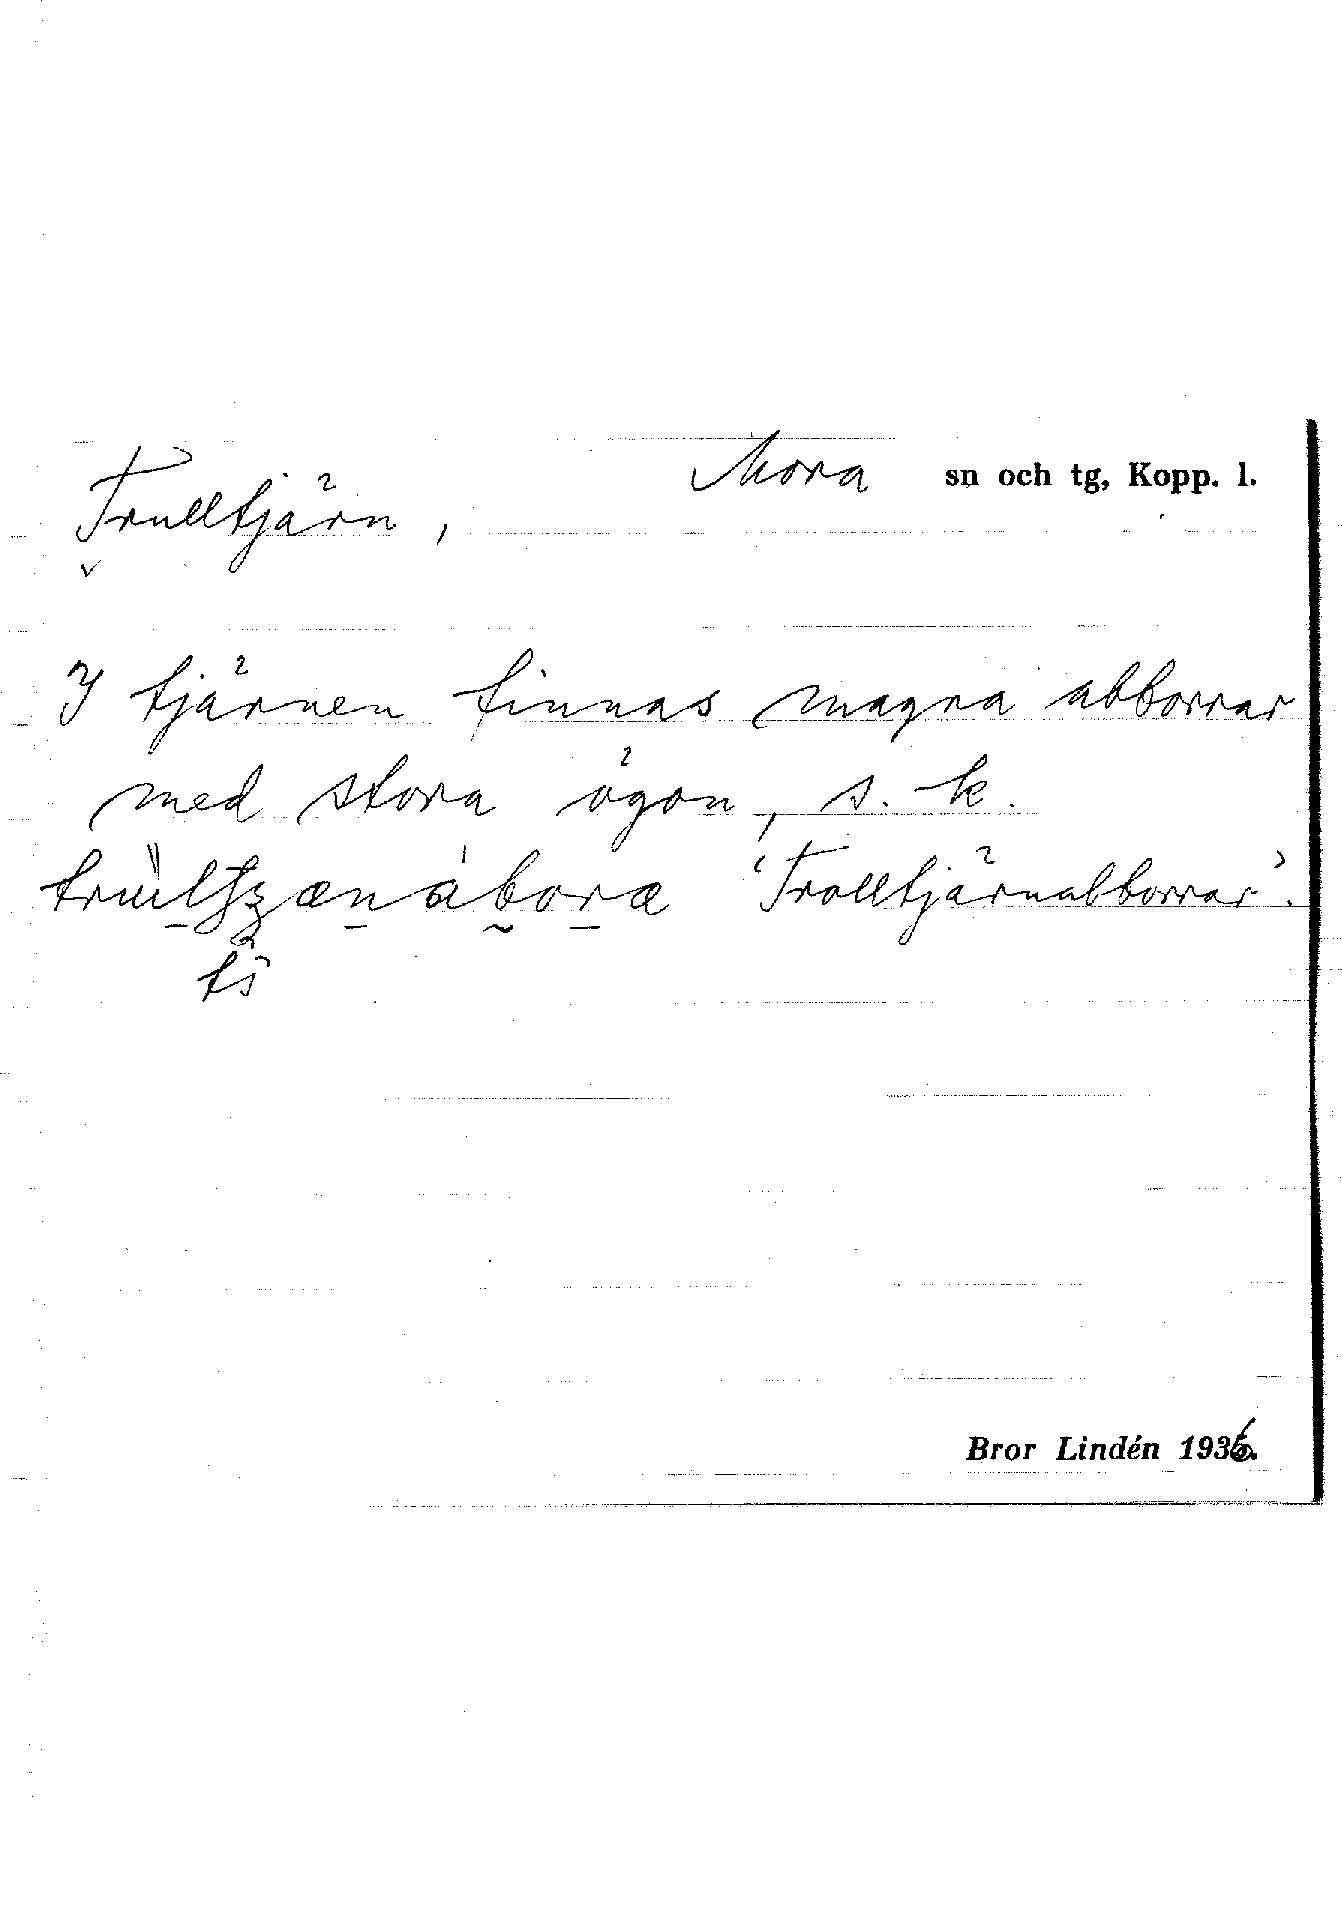 Mora sn och tg, Kopp. l.
Trulltjärn,
I tjärnen finnas magra abborrar
med stora ögon, s. k.
'Trolltjärnabborrar'.
Bror Lindén 1936.